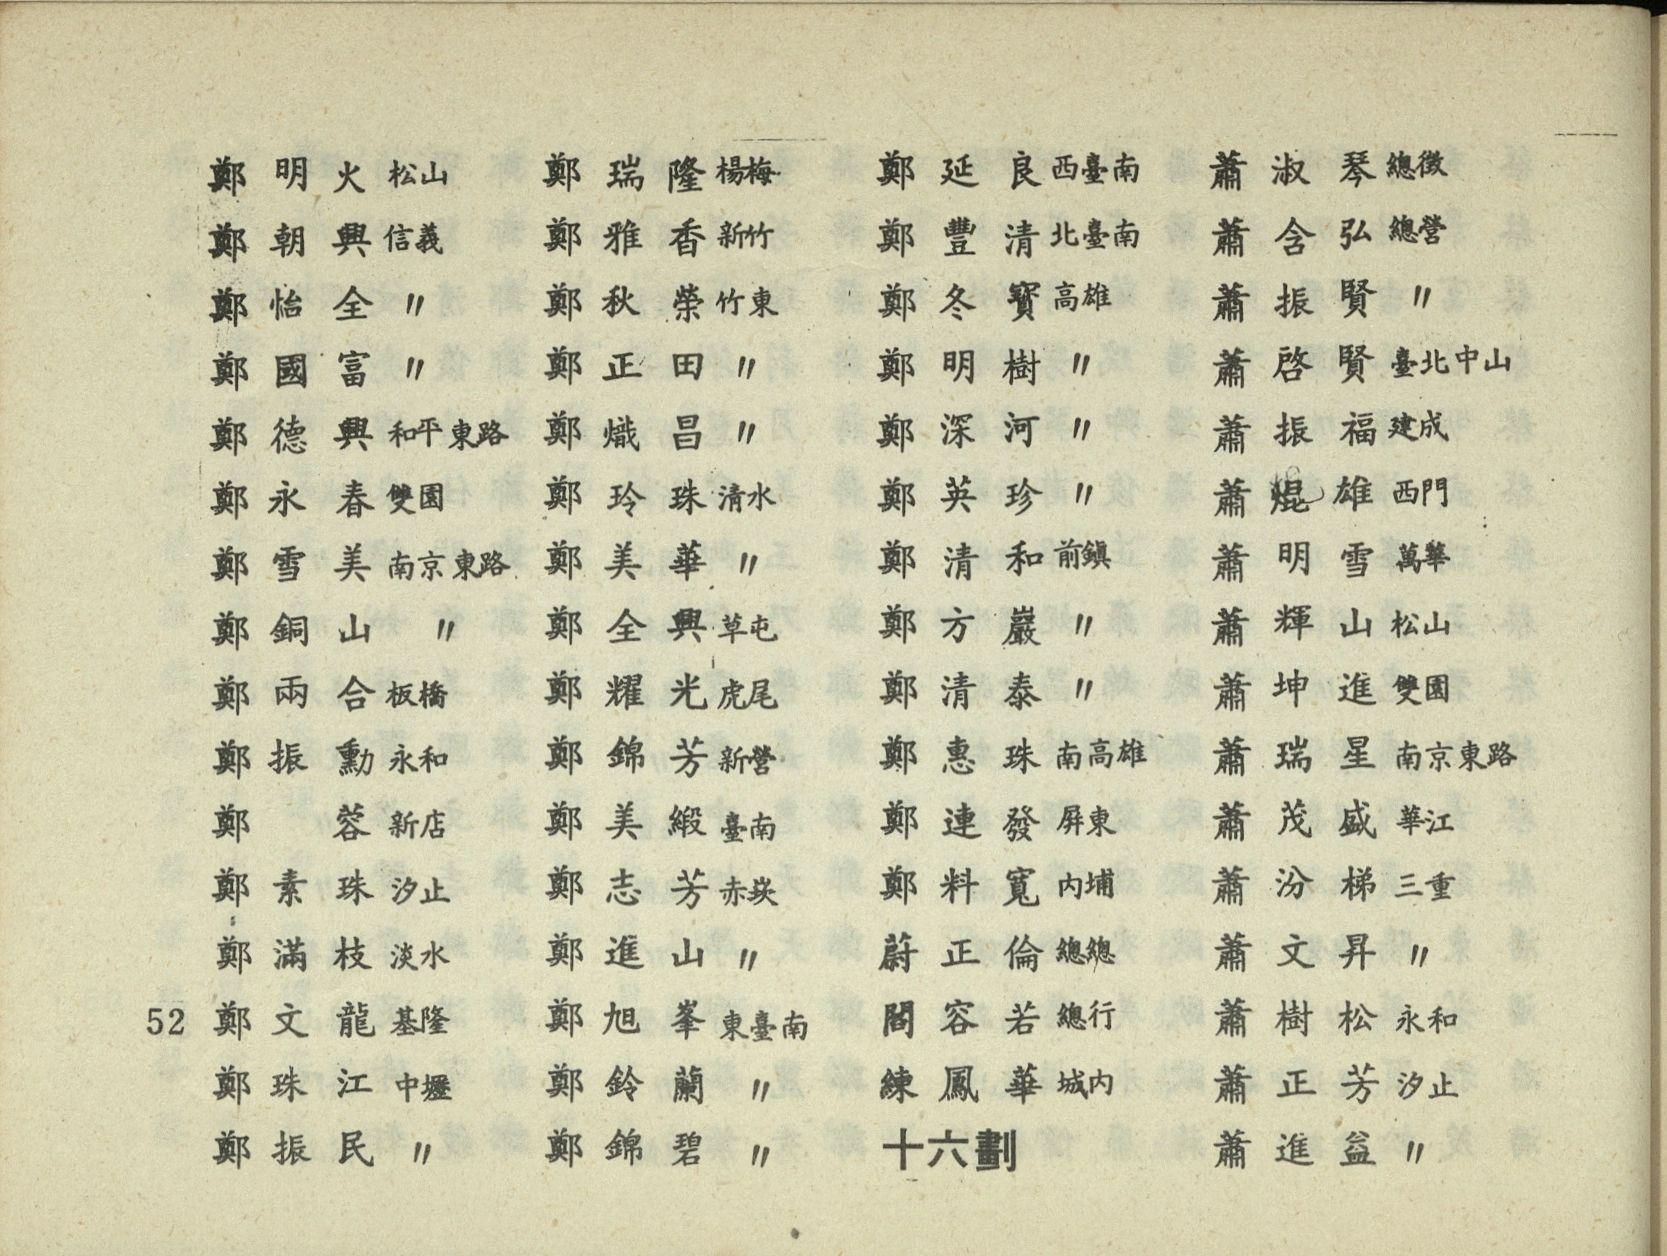 鄭明火 松山
鄭朝興 信義
鄭怡全 〃
鄭國富 〃
鄭德興 和平東路
鄭永春 雙園
鄭雪美 南京東路
鄭銅山 〃
鄭兩合 板橋
鄭振勳 永和
鄭 蓉 新店
鄭素珠 汐止
鄭滿枝 淡水
鄭文龍 基隆
鄭珠江 中壢
鄭振民 〃
鄭瑞隆 楊梅
鄭雅香 新竹
鄭秋榮 竹東
鄭正田 〃
鄭熾昌 〃
鄭玲珠 清水
鄭美華 〃
鄭全興 草屯
鄭耀光 虎尾
鄭錦芳 新營
鄭美緞 臺南
鄭志芳 赤崁
鄭進山 〃
鄭旭峯 東臺南
鄭鈴蘭 〃
鄭錦碧 〃
鄭延良 西臺南
鄭豐清 北臺南
鄭冬寶 高雄
鄭明樹 〃
鄭深河 〃
鄭英珍 〃
鄭清和 前鎮
鄭方巖 〃
鄭清泰 〃
鄭惠珠 南高雄
鄭連發 屏東
鄭料寬 內埔
蔚正倫 總總
閻容若 總行
練鳳華 城内
十六劃
蕭淑琴 總徵
蕭含弘 總營
蕭振賢 〃
蕭啓賢 臺北中山
蕭振福 建成
蕭焜雄 西門
蕭明雪 萬華
蕭輝山 松山
蕭坤進 雙園
蕭瑞星 南京東路
蕭茂盛 華江
蕭汾梯 三重
蕭文昇 〃
蕭樹松 永和
蕭正芳 汐止
蕭進益 〃
52